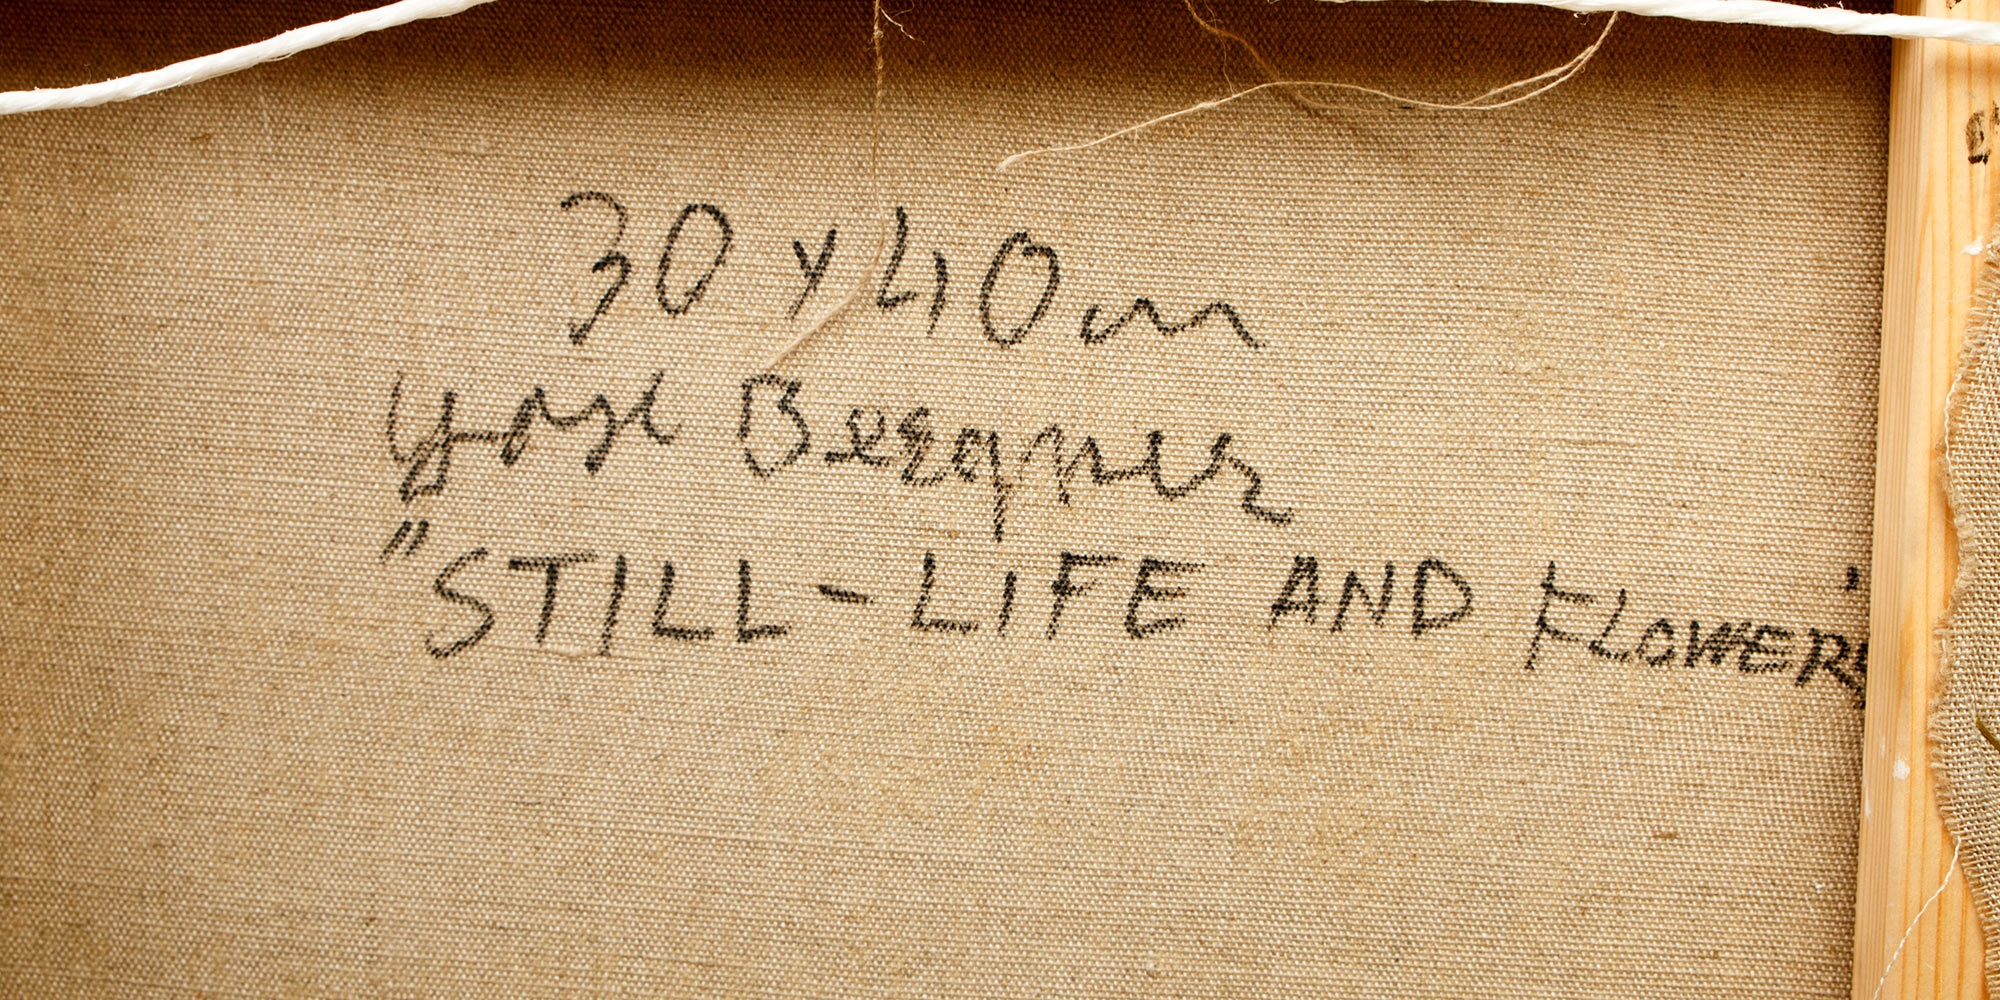 30 x 40 cm
Yosl Bergner
"STILL-LIFE AND FLOWERS"